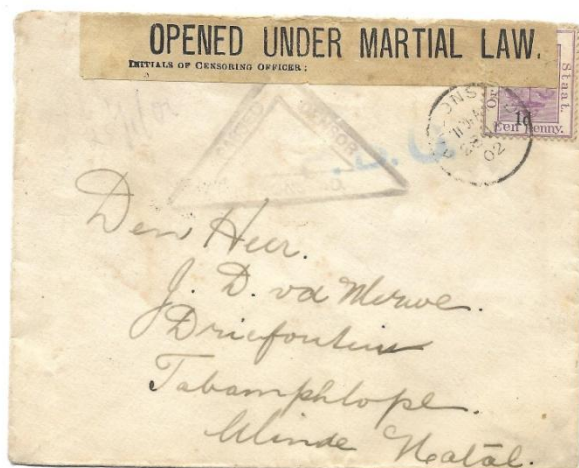 OPENED UNDER MARTIAL LAW.
INITIALS OF CENSORING OFFICER:
Staat.
Or
1d
Een Penny.
02
Den Heer.
J. D. vd Merwe.
Driefontein
Tabamphlope.
Ulinde Natal.